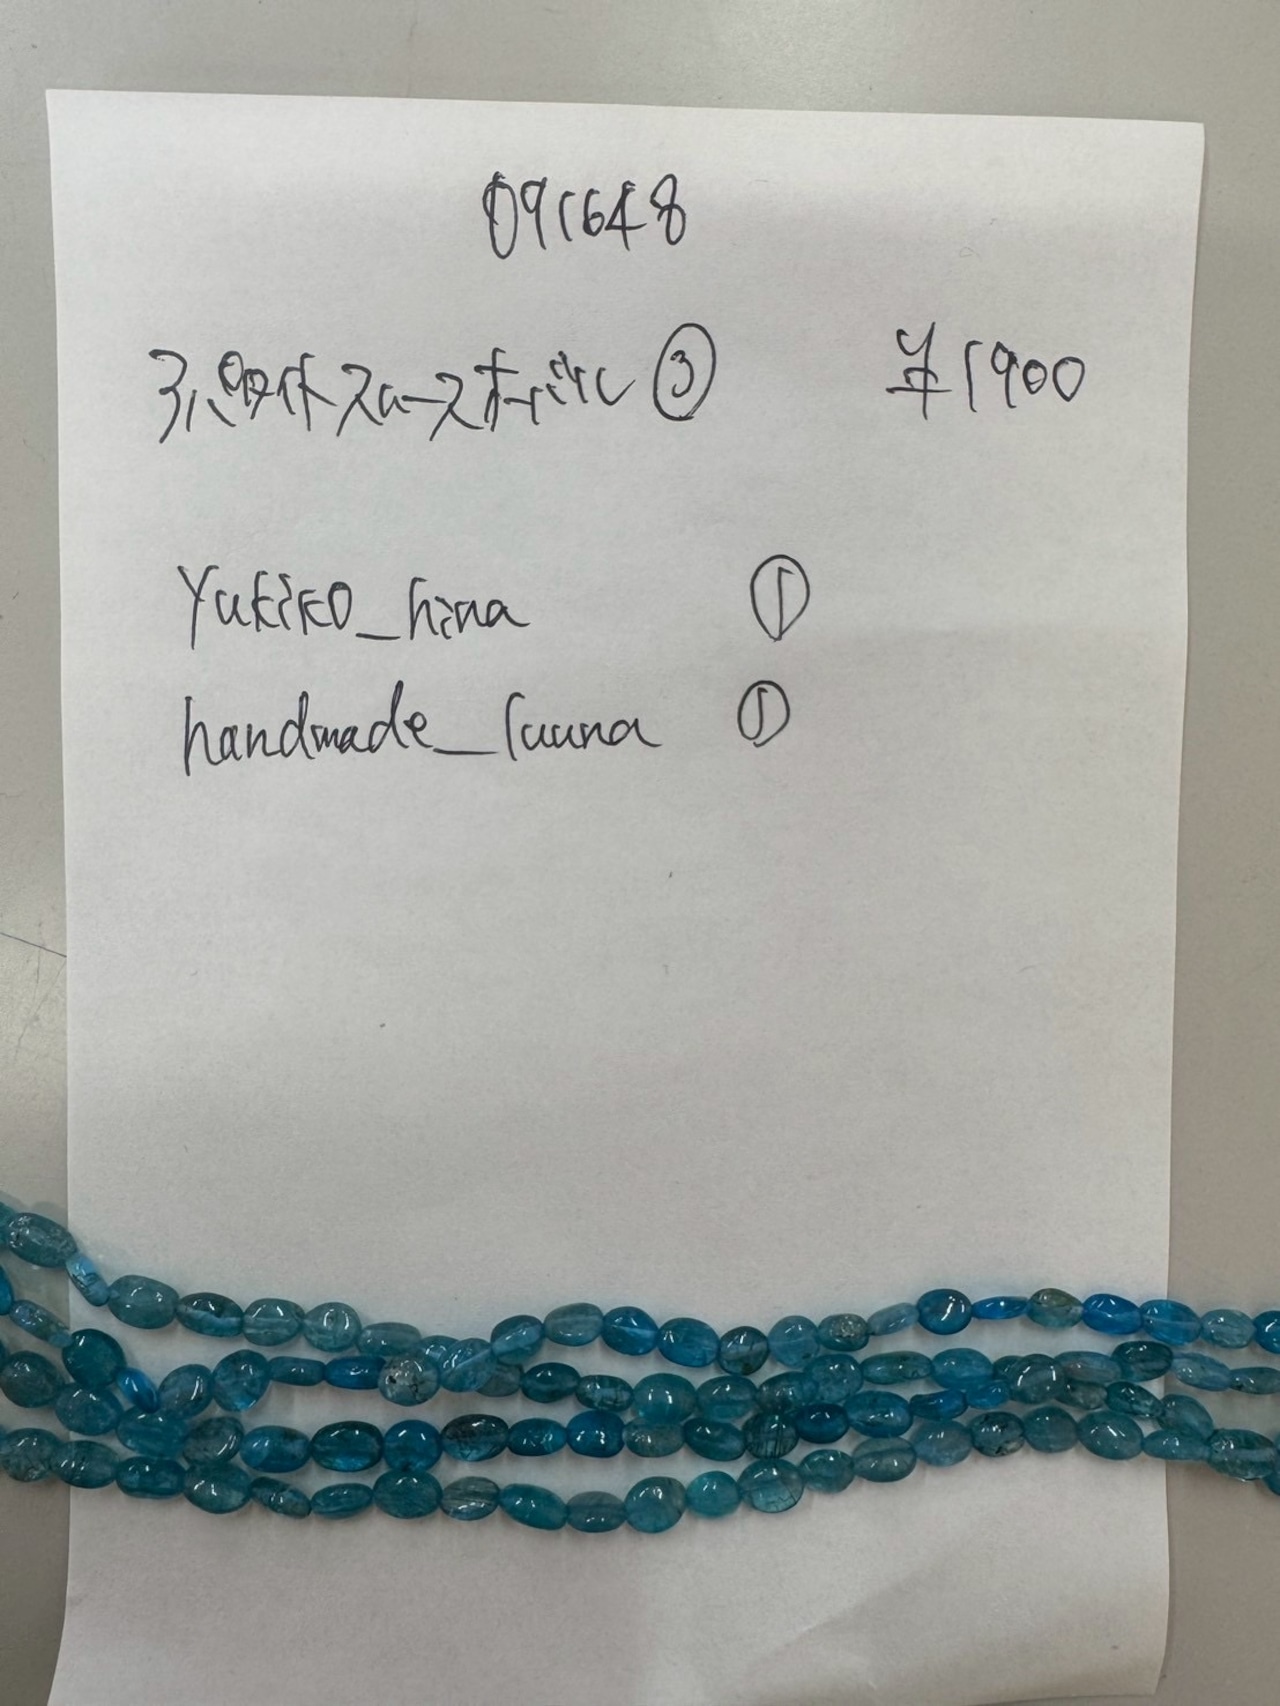 091648
アパタイトスムースオーバル ③ ¥1900
Yukiko_hina ①
handmade_luuna ①